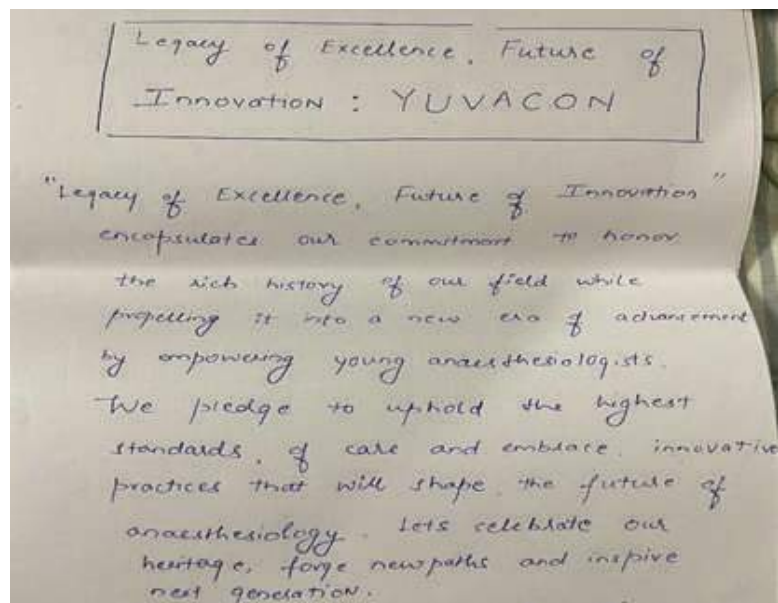 Legacy of Excellence, Future of
Innovation : YUVACON
"Legacy of Excellence, Future of Innovation"
encapsulates our commitment to honor
the rich history of our field while
propelling it into a new era of advancement
by empowering young anaesthesiologists.
We pledge to uphold the highest
standards, of care and embrace innovative
practices that will shape the future of
anaesthesiology. Lets celebrate our
heritage, forge new paths and inspire
next generation.